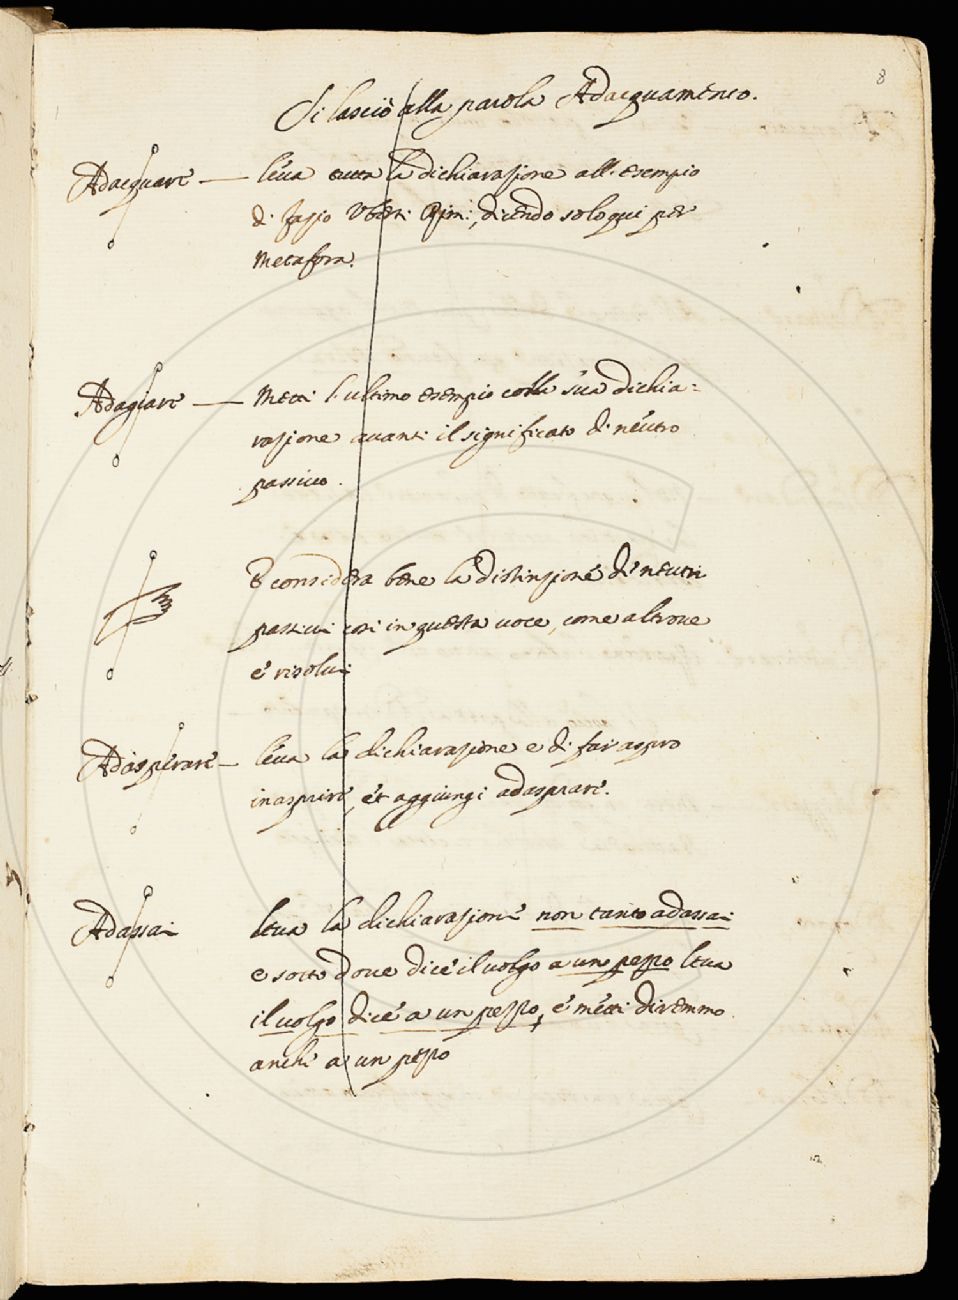 8
Si lasciò alla parola Adacquamento.
Adacquare — leva tutta la dichiarazione all. esempio
di Fazio Uberti Rim:, dicendo solo qui per
metafora.
Adagiare — Metti l'ultimo esempio colla sua dichia=
razione avanti il significato di neutro
passivo.
E considera bene la distinzione de neutri
passivi così in questa voce, come altrove
è risolvi
Adasperare — leva la dichiarazione e di far aspro
inasprire, et aggiungi adasprare.
Adassai leva la dichiarazione non tanto adassai
e sotto dove dice il volgo a un pezzo leva
il volgo dice a un pezzo, e metti diremmo
anche a un pezzo